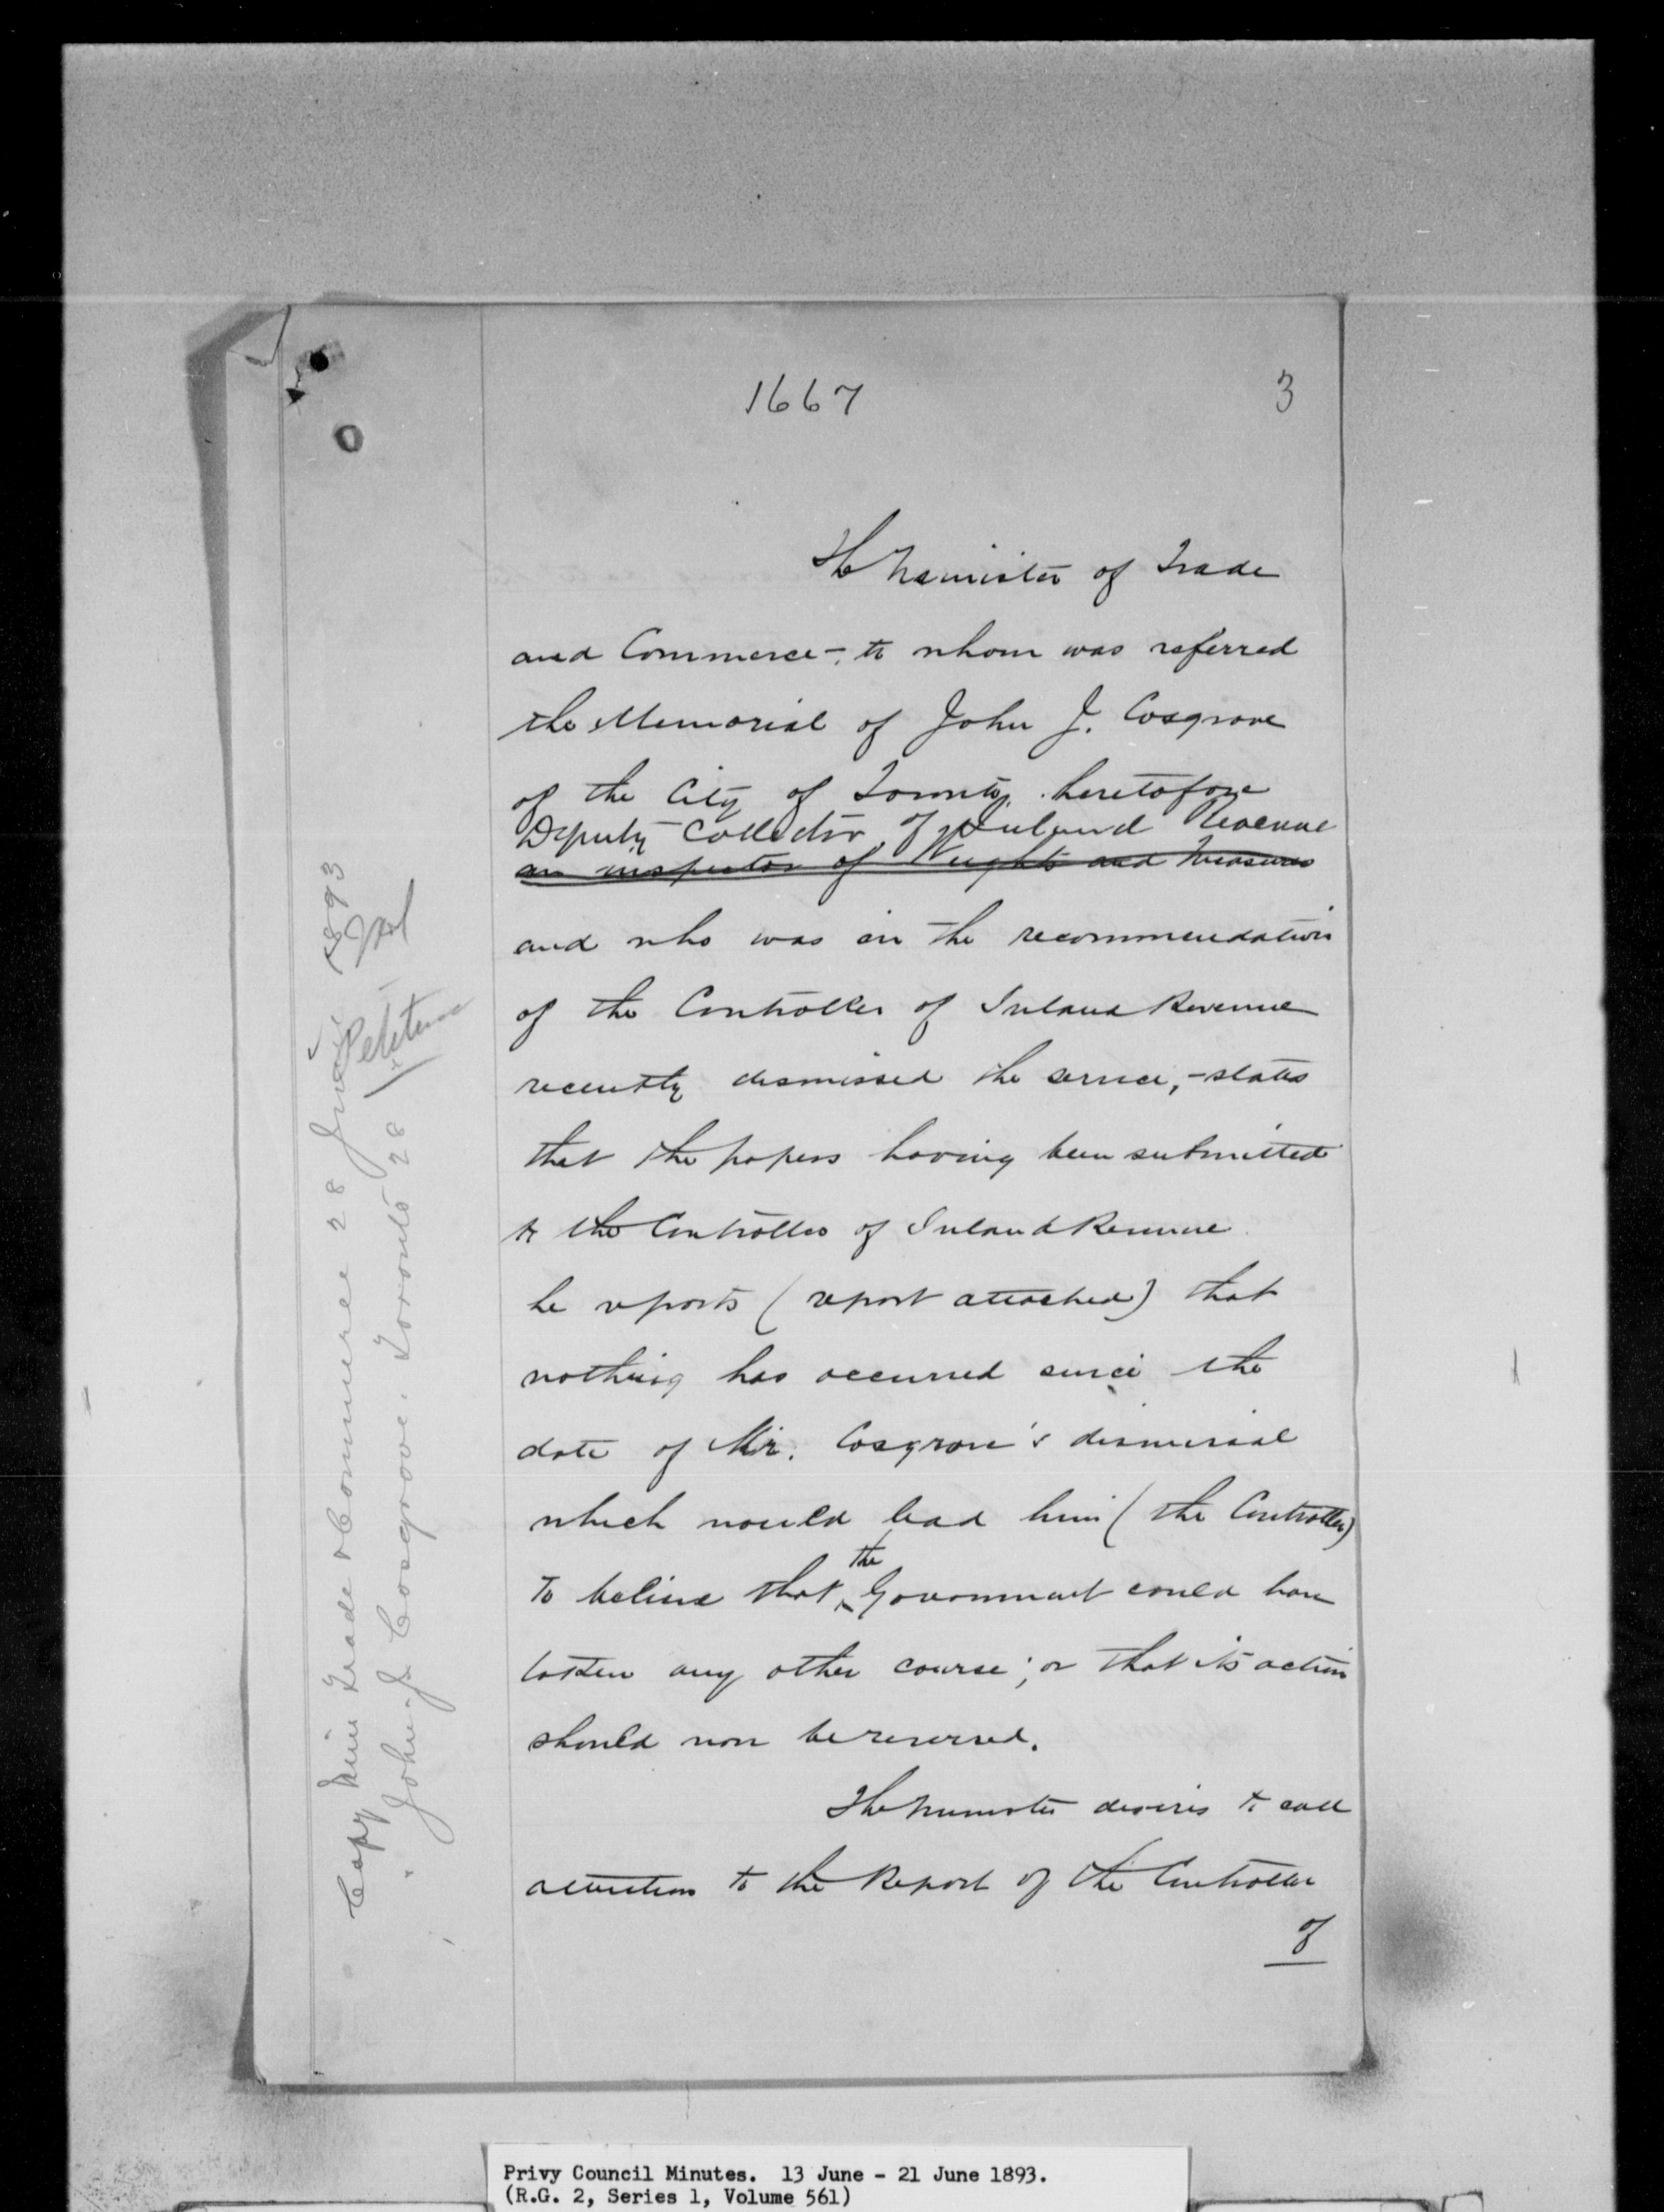 1667
3
The Minister of Trade
and Commerce – to whom was referred
the Memorial of John J. Cosgrove
of the City of Toronto, heretofore
Deputy Collector of Inland Revenue
an inspector of Weights and Measures
and who was on the recommendation
of the Controller of Inland Revenue
recently dismissed the service, – states
that the papers having been submitted
to the Controller of Inland Revenue
he reports (report attached) that
nothing has occurred since the
date of Mr. Cosgrove's dismissal
which would lead him (the Controller)
to believe that the Government could have
taken any other course; or that its action
should now be reversed.
The Minister desires to call
attention to the Report of the Controller
of
Copy Min Trade & Commerce 28 June 1893
" John J Cosgrove. Toronto 28
Petition
Privy Council Minutes. 13 June - 21 June 1893.
(R.G. 2, Series 1, Volume 561)